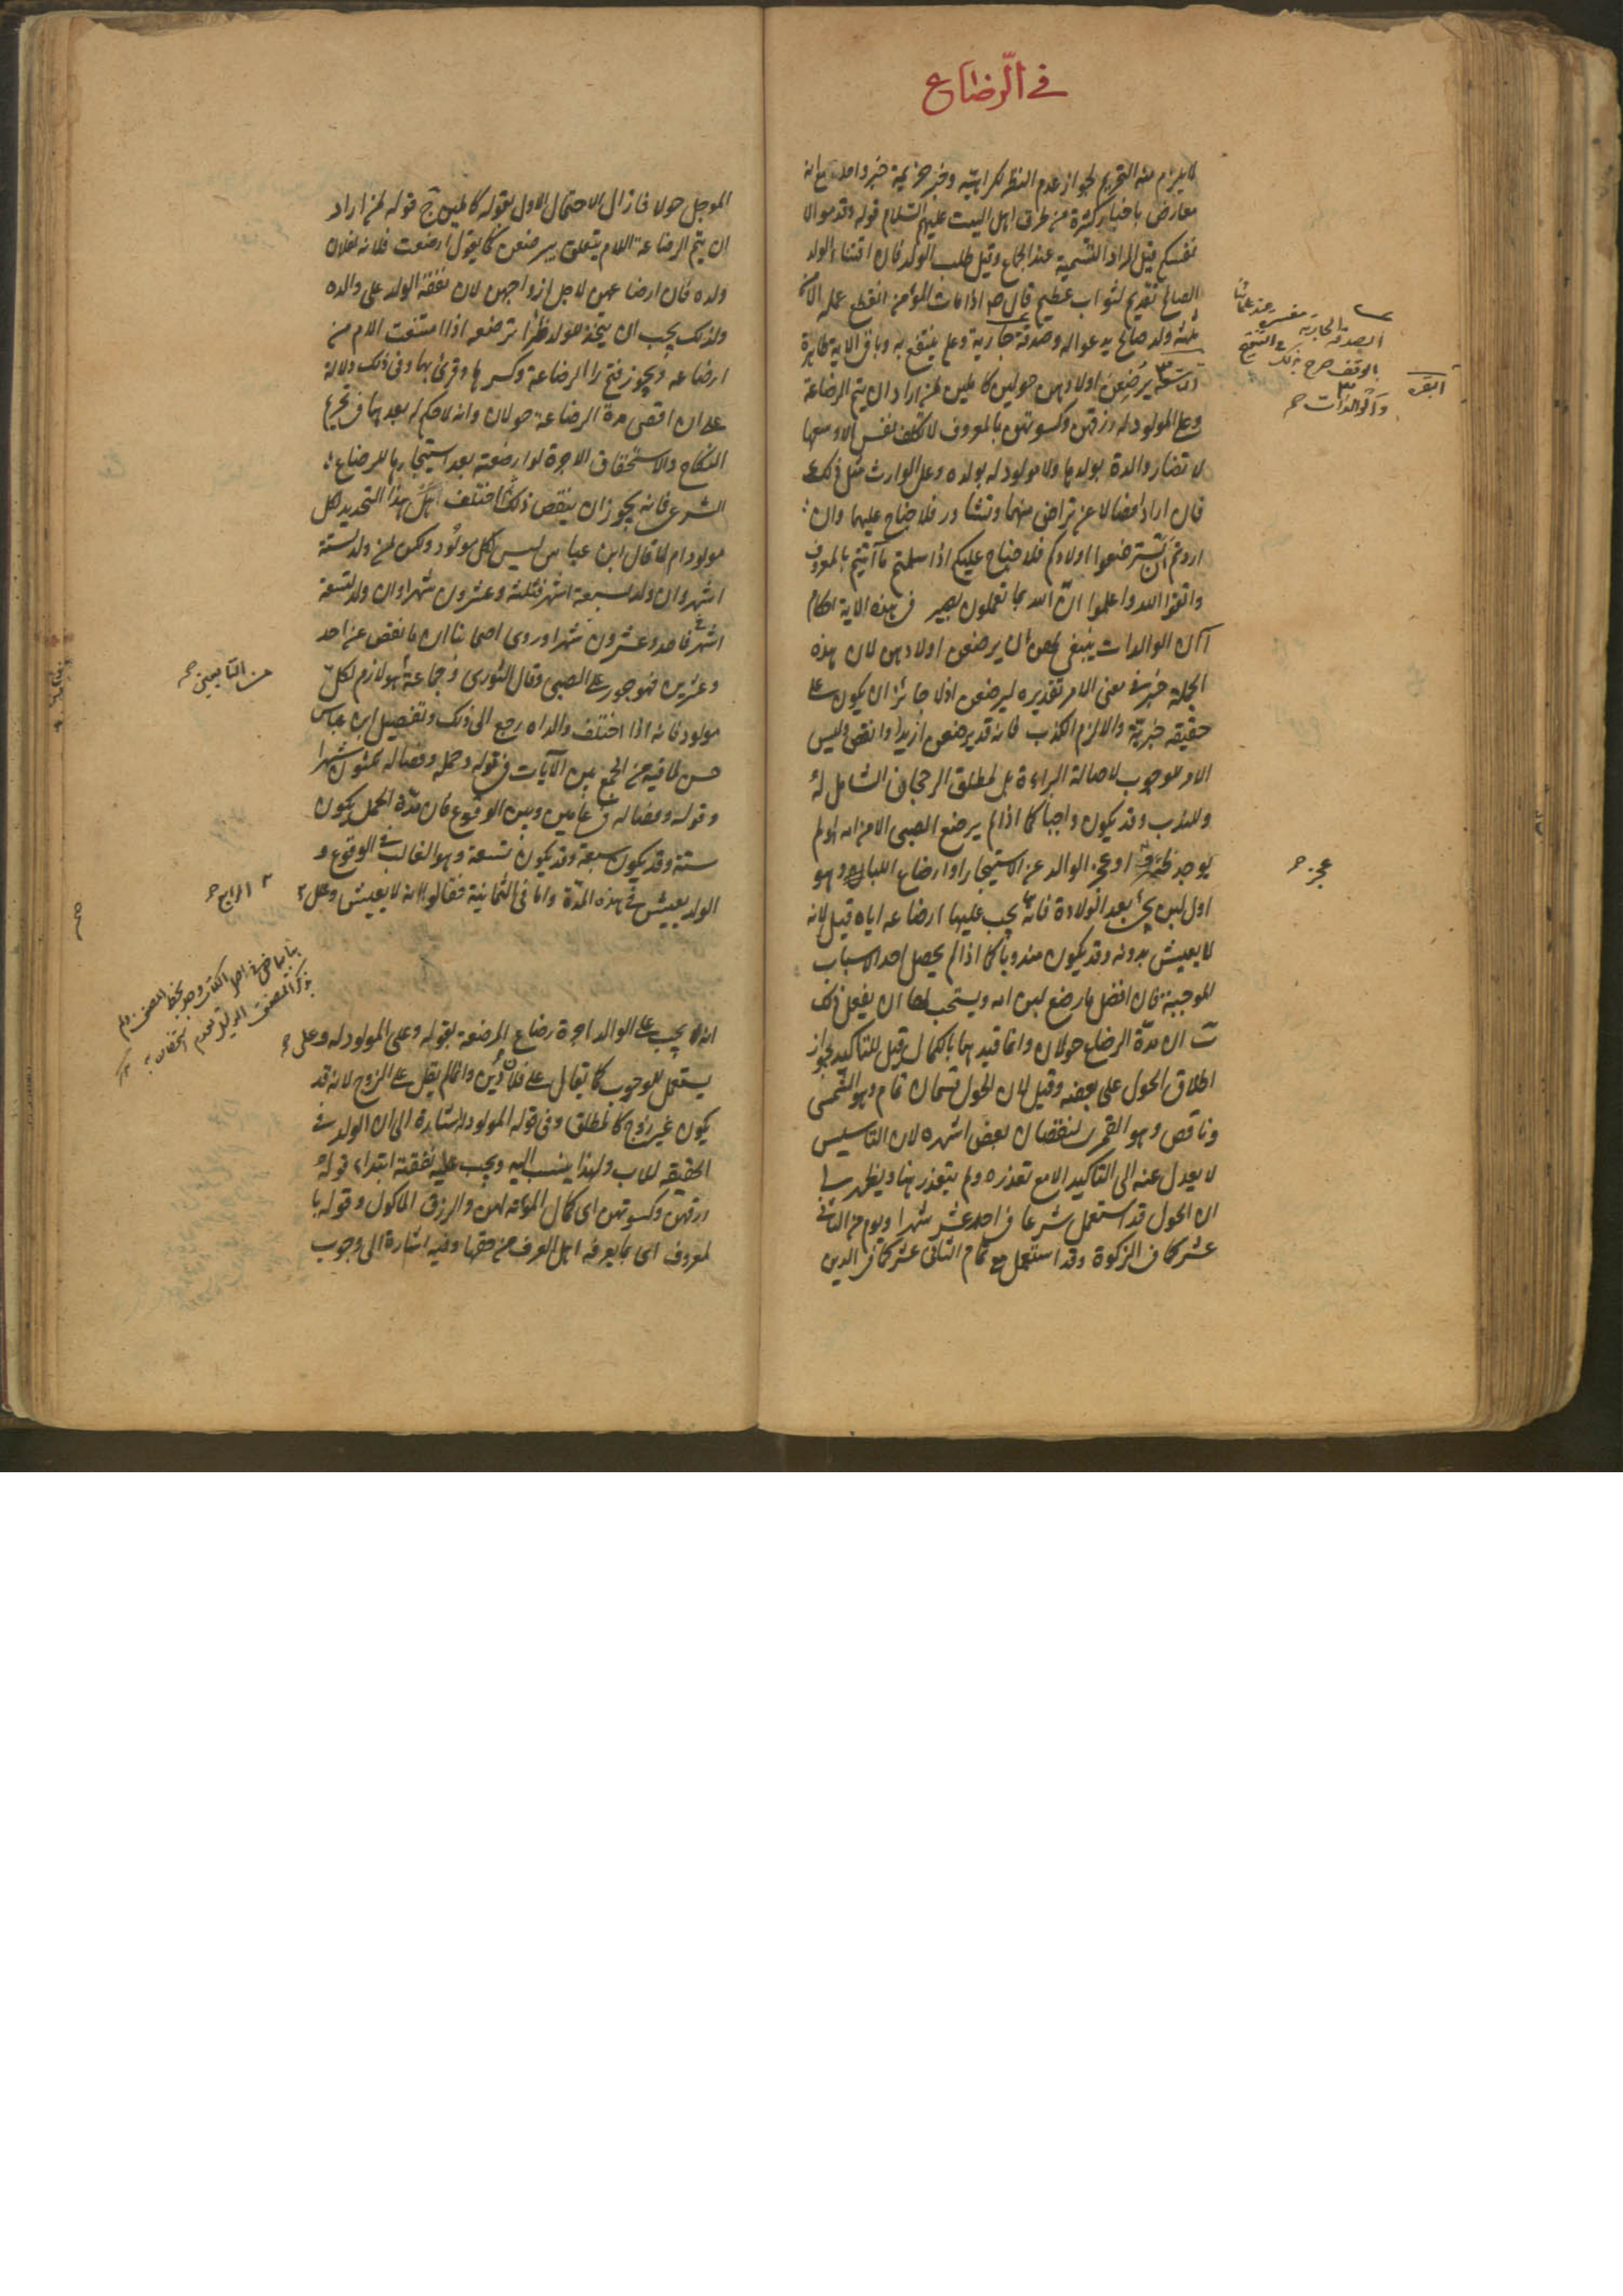 في الرضاع
لا يلزم منه التحريم لجواز عدم النظر لكراهته وخبر خزيمة خبر واحد مع انه
معارض باخبار كثيرة من طرق اهل البيت عليهم السلام قوله وقدموا لا
نفسكم قيل المراد التسمية عند الجماع وقيل طلب الولد فان اقتناء الولد
الصالح تقديم لثواب عظيم قال ص اذا مات المؤمن انقطع عمله الا من
ثلثة ولد صالح يدعو له وصدقة جارية وعلم ينتفع به وباقى الاية ظاهرة
التاسعة يرضعن اولادهن حولين كاملين لمن اراد ان يتم الرضاعة
وعلى المولود له رزقهن وكسوتهن بالمعروف لا تكلف نفس الا وسعها
لا تضار والدة بولدها ولا مولود له بولده وعلى الوارث مثل ذلك
فان ارادا فصالا عن تراض منهما وتشاور فلا جناح عليهما وان
اردتم ان تسترضعوا اولادكم فلا جناح عليكم اذا سلمتم ما آتيتم بالمعروف
واتقوا الله واعلموا ان الله بما تعملون بصير فى هذه الاية احكام
آ ان الوالدات ينبغى لهن ان يرضعن اولادهن لان هذه
الجملة خبر فى معنى الامر تقديره ليرضعن اذ لا جائز ان يكون على
حقيقة خبرية والا لزم الكذب فانه قد يرضعن ازيد او انقص وليس
الامر للوجوب لاصالة البراءة بل لمطلق الرجحان الشامل له
وللندب وقد يكون واجبا كما اذا لم يرضع الصبى الا من امه او لم
يوجد ظئر او عجز الوالد عن الاستيجار او ارضاع اللباء وهو
اول لبن يجئ بعد الولادة فانه يجب عليها ارضاعه اياه قيل لانه
لا يعيش بدونه وقد يكون مندوبا كما اذا لم يحصل احد الاسباب
الموجبة فان افضل ما رضع لبن امه ويستحب لها ان يفعل ذلك
ب ان مدة الرضاع حولان وانما قيدهما بالكمال قيل للتاكيد لجواز
اطلاق الحول على بعضه وقيل لان الحول قسمان تام وهو الشمسى
وناقص وهو القمرى لنقصان بعض اشهره لان التاسيس
لا يعدل عنه الى التاكيد الا مع تعذره ولم يتعذر هنا ويظهر لى
ان الحول قد استعمل شرعا فى احد عشر شهرا ويوم من الثانى
عشر كما فى الزكوة وقد استعمل مع تمام الثانى عشر كما فى الدين
الصدقة الجارية مفسر عند علمائنا
بالوقف صرح بذلك الشيخ
البقرة
والوالدات صح
عجز
الموجل حولا فازال الاحتمال الاول بقوله كاملين ج قوله لمن اراد
ان يتم الرضاعة اللام يتعلق بيرضعن كما يقول ارضعت فلانة لفلان
ولده فان ارضاعهن لاجل ازواجهن لان نفقة الولد على والده
ولذلك يجب ان يتخذ للولد ظئرا ترضعه اذا امتنعت الام من
ارضاعه ويجوز فتح را الرضاعة وكسرها وقرئ بهما وفى ذلك دلالة
على ان اقصى مدة الرضاعة حولان وانه لا حكم له بعدهما فى تحريم
النكاح والاستحقاق الاجرة لو ارضعته بعد استيجارها للرضاع
الشرعى فانه يجوز ان ينقص ذلك اختلف هل هذا التحديد لكل
مولود ام لا قال ابن عباس ليس لكل مولود ولكن لمن ولد لستة
اشهر وان ولد لسبعة اشهر فثلثة وعشرون شهرا وان ولد لتسعة
اشهر فاحد وعشرون شهرا وروى اصحابنا ان ما نقص عن احد
وعشرين فهو جور على الصبى وقال الثورى وجماعة هو لازم لكل
مولود فانه اذا اختلف والداه رجع الى ذلك وتفصيل ابن عباس
حسن لما فيه من الجمع بين الآيات فى قوله وحمله وفصاله ثلثون شهرا
وقوله وفصاله فى عامين وبين الوقوع فان مدة الحمل يكون
ستة وقد يكون سبعة وقد يكون تسعة وهو الغالب فى الوقوع و
الولد يعيش فى هذه المدة واما فى الثمانية فقالوا انه لا يعيش وعلل
انه يجب على الوالد اجرة رضاع المرضعة بقوله وعلى المولود له وعلى
يستعمل للوجوب كما يقال على فلان دين وانما لم يقل على الزوج لانه قد
يكون غير زوج كالمطلق وفى قوله المولود له اشارة الى ان الولد فى
الحقيقة للاب ولهذا ينسب اليه ويجب عليه نفقته ابتداء قوله
رزقهن وكسوتهن اى كمال المؤنة لهن والرزق الماكول وقوله با
لمعروف اى بما يعرفه اهل العرف من حقها وفيه اشارة الى وجوب
من التابعين صح
الرابع